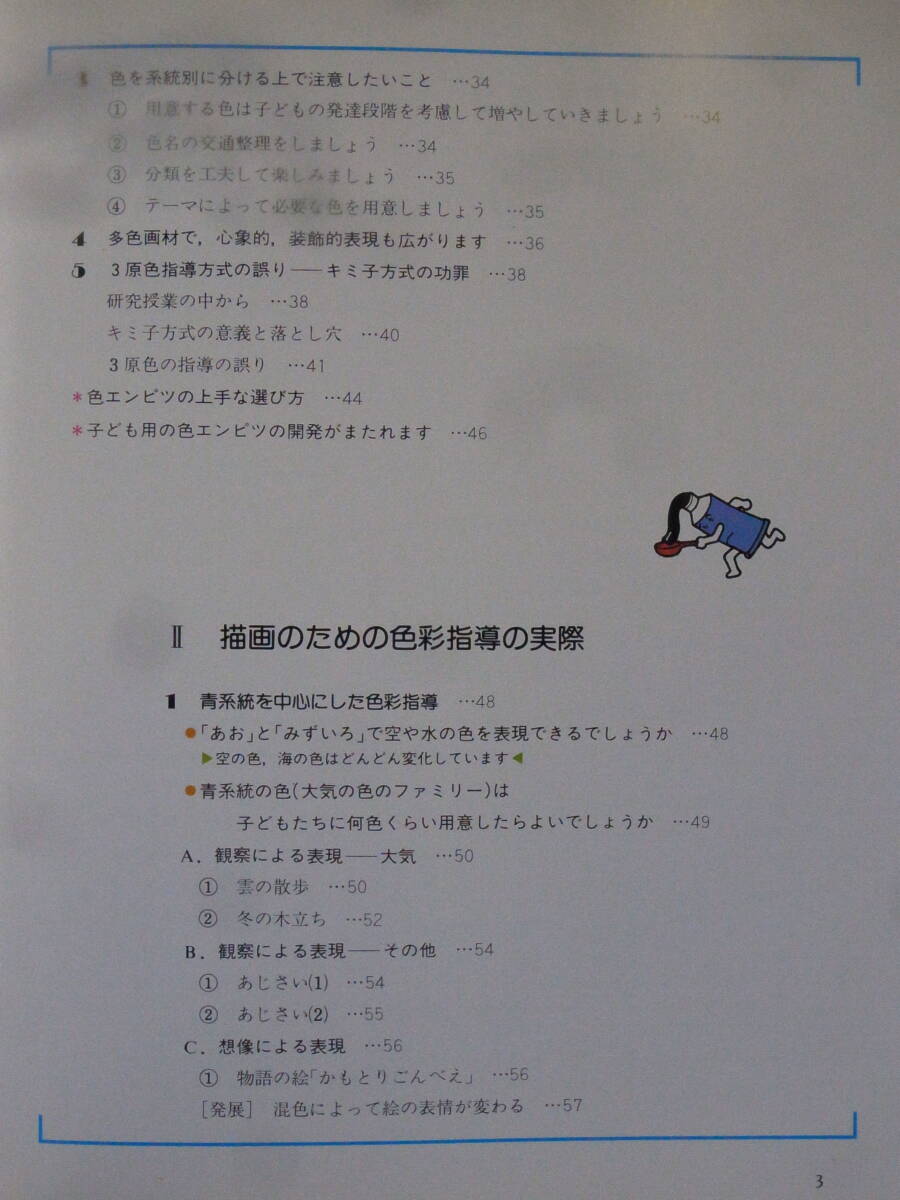 色を系統別に分ける上で注意したいこと …34
① 用意する色は子どもの発達段階を考慮して増やしていきましょう …34
② 色名の交通整理をしましょう …34
③ 分類を工夫して楽しみましょう …35
④ テーマによって必要な色を用意しましょう …35
4 多色画材で，心象的，装飾的表現も広がります …36
5 3原色指導方式の誤り――キミ子方式の功罪 …38
研究授業の中から …38
キミ子方式の意義と落とし穴 …40
3原色の指導の誤り …41
＊色エンピツの上手な選び方 …44
＊子ども用の色エンピツの開発がまたれます …46
Ⅱ 描画のための色彩指導の実際
1 青系統を中心にした色彩指導 …48
●「あお」と「みずいろ」で空や水の色を表現できるでしょうか …48
▶空の色，海の色はどんどん変化しています◀
●青系統の色（大気の色のファミリー）は
子どもたちに何色くらい用意したらよいでしょうか …49
A．観察による表現――大気 …50
① 雲の散歩 …50
② 冬の木立ち …52
B．観察による表現――その他 …54
① あじさい(1) …54
② あじさい(2) …55
C．想像による表現 …56
① 物語の絵「かもとりごんべえ」 …56
［発展］ 混色によって絵の表情が変わる …57
3